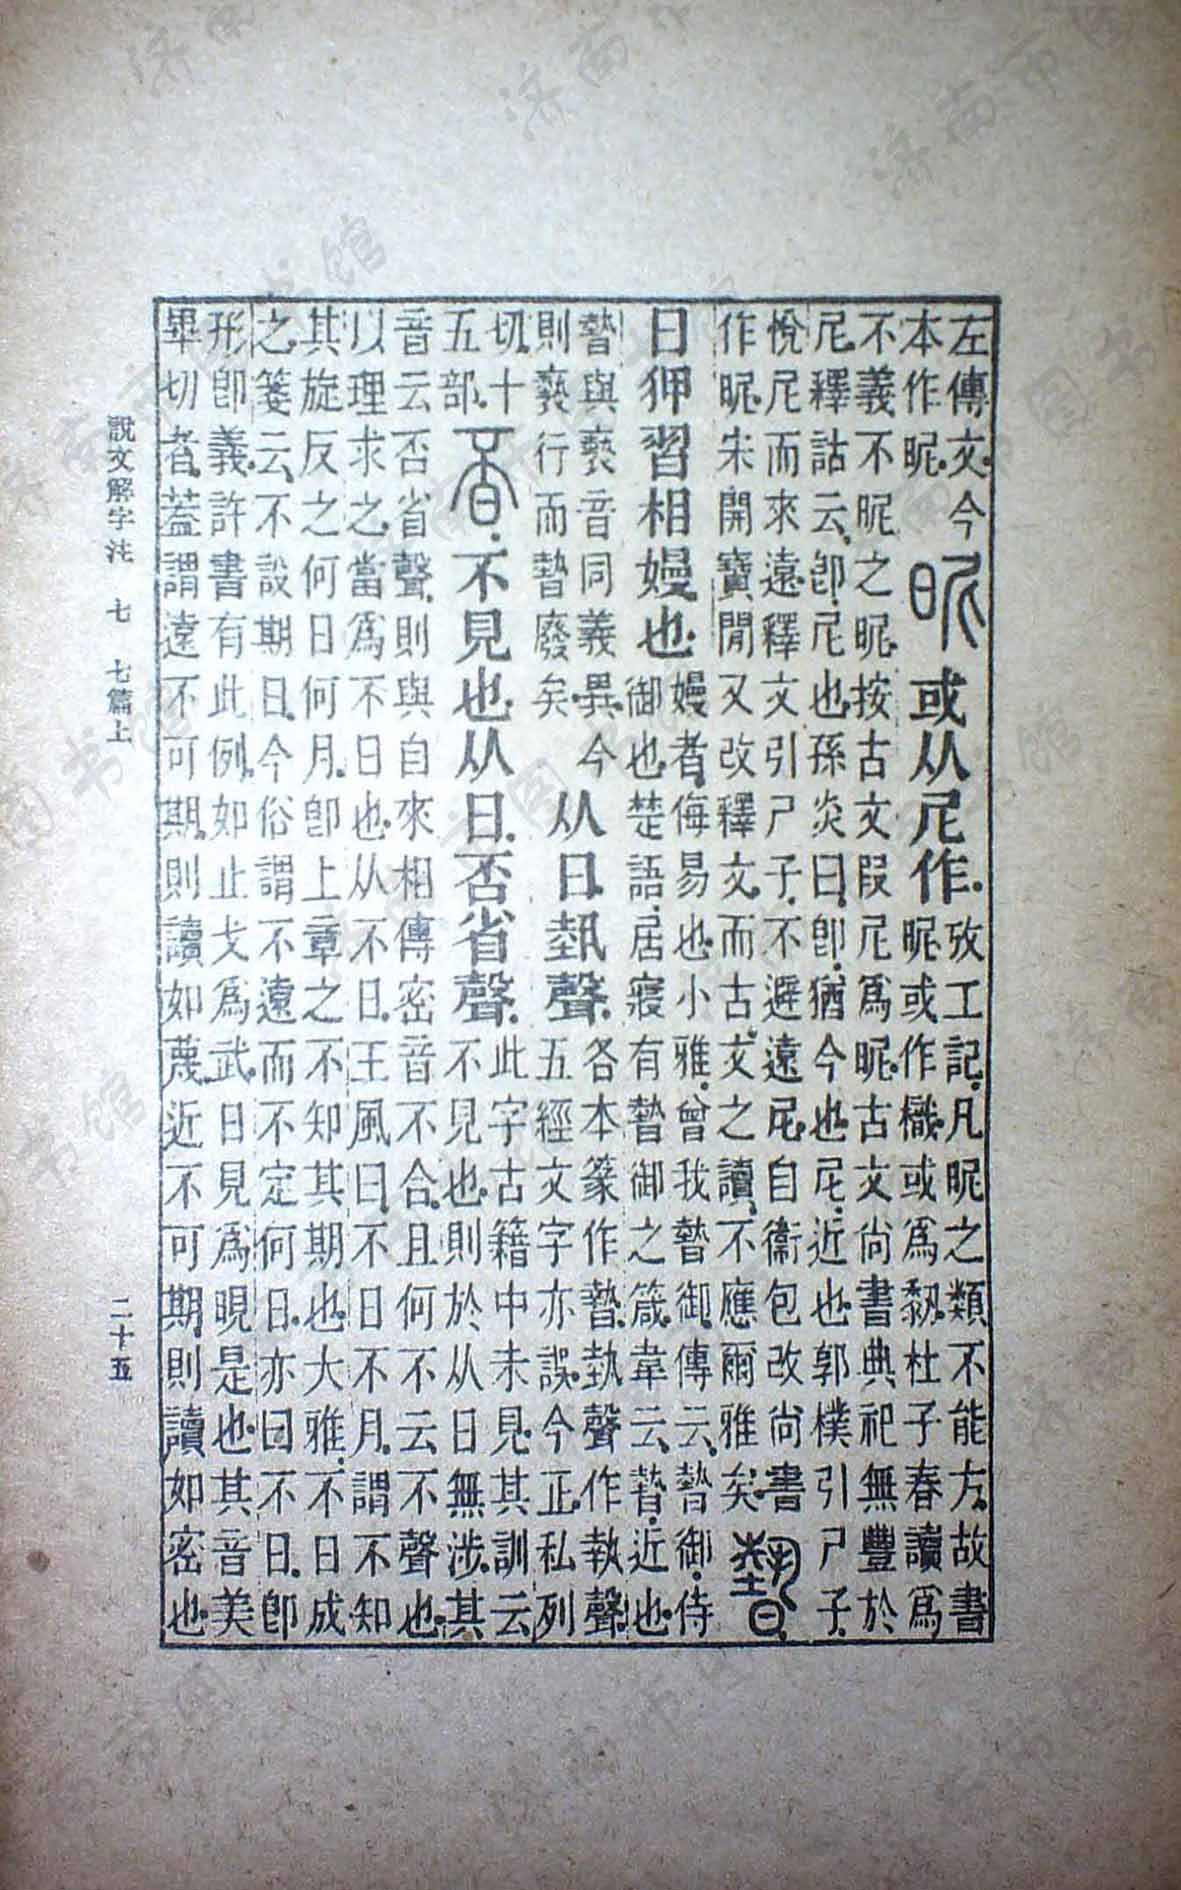 左傳文。今
本作昵。
昵
或从尼作。
攷工記。凡昵之類不能方。故書
昵或作樴。或爲䵑。杜子春讀爲
不義不昵之昵。按古文叚尼爲昵。古文尚書典祀無豐於
尼。釋詁云。卽、尼也。孫炎曰。卽猶今也。尼、近也。郭樸引尸子。
悅尼而來遠。釋文引尸子。不避遠尼。自衞包改尚書
作昵。宋開寶閒又改釋文。而古文之讀不應爾雅矣。
暬
日狎習相嫚也。
嫚者、侮易也。小雅。曾我暬御。傳云。暬御、侍
御也。楚語。居寢有暬御之箴。韋云。暬、近也。
暬與褻音同義異。今
則褻行而暬廢矣。
从日。埶聲。
各本篆作暬。埶聲作執聲。
五經文字亦誤。今正。私列
切。十
五部。
㫘
不見也。从日。否省聲。
此字古籍中未見。其訓云
不見也。則於从日無涉。其
音云否省聲。則與自來相傳密音不合。且何不云不聲也。
以理求之。當爲不日也。从不日。王風曰。不日不月。謂不知
其旋反之何日何月。卽上章之不知其期也。大雅。不日成
之。箋云。不設期日。今俗謂不遠而不定何日。亦曰不日。卽
形卽義。許書有此例。如止戈爲武。日見爲晛是也。其音美
畢切者。蓋謂遠不可期。則讀如蔑。近不可期。則讀如密也。
說文解字注 七 七篇上 二十五
济南市图书馆